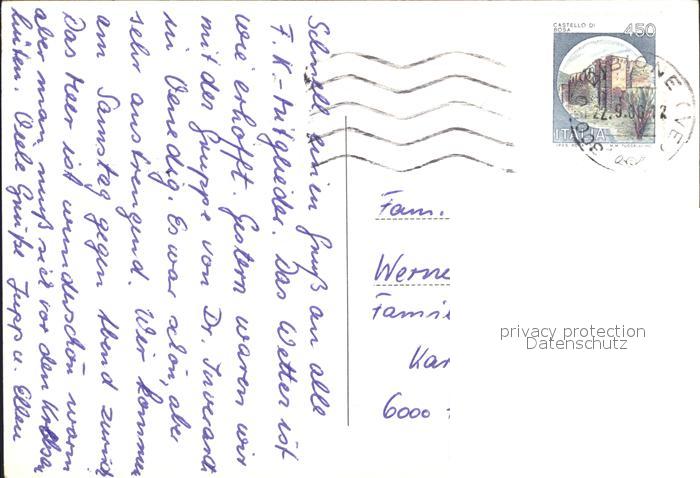 Schnell ein Gruß an alle
F.K.-Mitglieder. Das Wetter ist
wie erhofft. Gestern waren wir
mit der Gruppe von Dr.
in Venedig. Es war schön, aber
sehr anstrengend. Wir kommen
am Samstag gegen Abend zurück
Das Meer ist wunderschön warm
aber man muß sich vor den
hüten. Viele Grüße Jupp u. Ellen
CASTELLO DI
BOSA
450
ITALIA
BIBIONE (VE)
Fam.
Werne
Famili
Kar
6000
privacy protection
Datenschutz